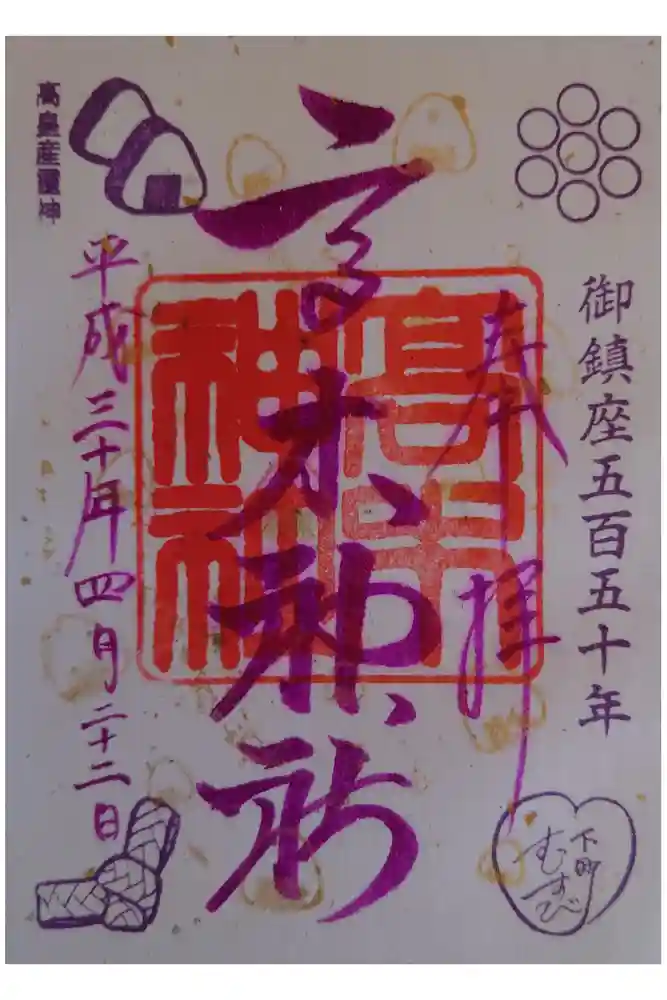 御鎮座五百五十年
奉拝
高木神社
高木神社
高皇産靈神
平成三十年四月二十二日
下町
むすび